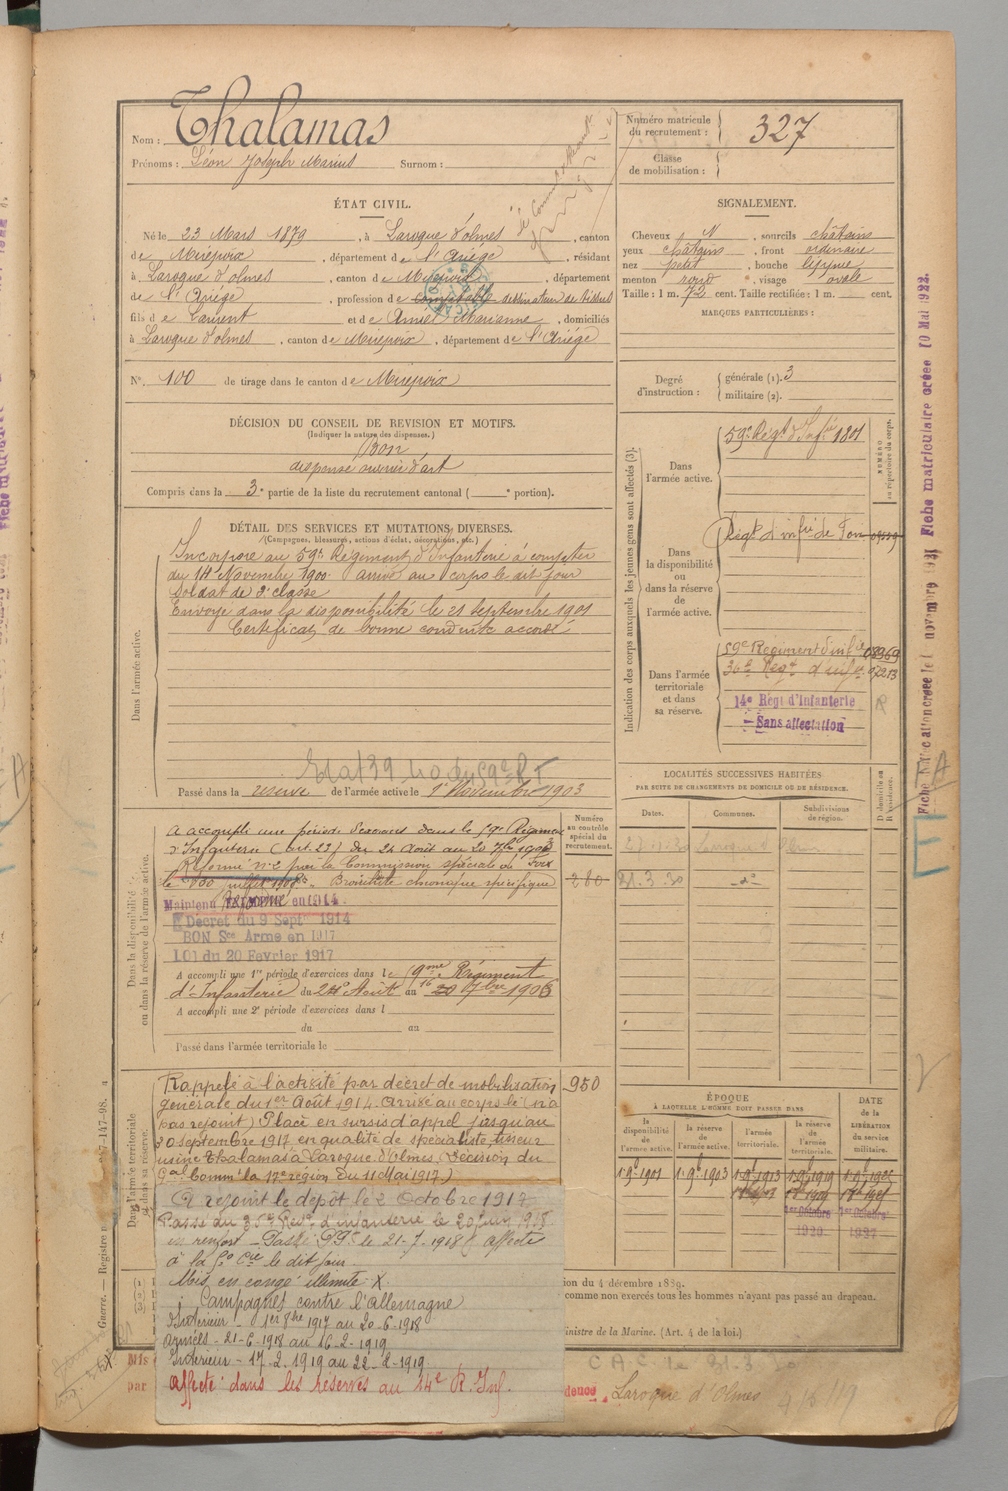 Nom : Thalamas
Prénoms : Léon Joseph Marius Surnom :
Numéro matricule du recrutement : 327
Classe de mobilisation :
ÉTAT CIVIL.
Né le 23 Mars 1879, à Laroque d'olmes, canton
de Mirepoix, département de l'Ariége, résidant
à Laroque d'olmes, canton de Mirepoix, département
de l'Ariége, profession de comptable dessinateur de tissus
fils de Laurent et de Amiel Marianne, domiciliés
à Laroque d'olmes, canton de Mirepoix, département de l'Ariége
N°. 100 de tirage dans le canton de Mirepoix
SIGNALEMENT.
Cheveux N, sourcils châtains
yeux châtains, front ordinaire
nez petit, bouche lippue
menton rond, visage ovale
Taille : 1 m. 72 cent. Taille rectifiée : 1 m. cent.
MARQUES PARTICULIÈRES :
Degré d'instruction : générale (1). 3
militaire (2).
DÉCISION DU CONSEIL DE REVISION ET MOTIFS.
(Indiquer la nature des dispenses.)
Bon
dispensé ouvrier d'art
Compris dans la 3e partie de la liste du recrutement cantonal ( e portion).
DÉTAIL DES SERVICES ET MUTATIONS DIVERSES.
(Campagnes, blessures, actions d'éclat, décorations, etc.)
Dans l'armée active.
Incorporé au 59e Régiment d'Infanterie à compter
du 14 Novembre 1900 arrivé au corps le dit jour
Soldat de 2e classe
Envoyé dans la disponibilité le 21 Septembre 1901
Certificat de bonne conduite accordé
Passé dans la reserve de l'armée active le 1er Novembre 1903
Indication des corps auxquels les jeunes gens sont affectés (3).
NUMÉRO au répertoire du corps.
Dans l'armée active.
59e Régt d'Infie 1801
Dans la disponibilité ou dans la réserve de l'armée active.
Régt d'infie de Foix
Dans l'armée territoriale et dans sa réserve.
59e Régiment d'infie 08969
36e Régt d'infie 07213
14e Régt d'Infanterie
Sans affectation
R
LOCALITÉS SUCCESSIVES HABITÉES
PAR SUITE DE CHANGEMENTS DE DOMICILE OU DE RÉSIDENCE.
Dates. Communes. Subdivisions de région. D domicile ou R résidence.
31.3.30 -do-
Numéro au contrôle spécial du recrutement.
Dans la disponibilité ou dans la réserve de l'armée active.
A accompli une période d'exercices dans le 59e Régiment
d'Infanterie (art. 23) du 24 Août au 20 7bre 1903
Réformé n°2 par la Commission spéciale de Foix
le 30 juillet 1908. Bronchite chronique spécifique
260
Maintenu en 1914
Décret du 9 Septre 1914
BON Sce Armé en 1917
LOI du 20 Fevrier 1917
A accompli une 1re période d'exercices dans le 59me Régiment
d'Infanterie du 24 Août au 20 7bre 1906
A accompli une 2e période d'exercices dans l
du au
Passé dans l'armée territoriale le
Dans l'armée territoriale et dans sa réserve.
Rappelé à l'activité par décret de mobilisation 950
générale du 1er Août 1914. Arrivé au corps le (n'a
pas rejoint) Placé en sursis d'appel jusqu'au
30 septembre 1917 en qualité de spécialiste tisseur
usine Thalamas à Laroque d'Olmes (décision du
Gal Commt la 17e région du 11 Mai 1917.)
A rejoint le dépôt le 2 Octobre 1917
Passé au 36e Régt d'infanterie le 20 juin 1918
en renfort - Passé le 21-7-1918 & affecté
à la 5e Cie le dit jour
Mis en congé illimité X.
Campagnes contre l'allemagne
Intérieur - 1er 8bre 1917 au 20-6-1918
armées - 21-6-1918 au 16-2-1919
Intérieur - 17-2-1919 au 22-2-1919.
affecté dans les réserves au 14e R. Inf.
ÉPOQUE
À LAQUELLE L'HOMME DOIT PASSER DANS
la disponibilité de l'armée active. la réserve de l'armée active. l'armée territoriale. la réserve de l'armée territoriale. DATE de la LIBÉRATION du service militaire.
1 9b 1901 1 9b 1903 1 9b 1913 1 9b 1919
1er Octobre
1927
ion du 4 décembre 1889.
comme non exercés tous les hommes n'ayant pas passé au drapeau.
inistre de la Marine. (Art. 4 de la loi.)
C.A.C. le 31.3.30
Mis
par
dence Laroque d'Olmes
Fiche matriculaire créée 10 Mai 1922.